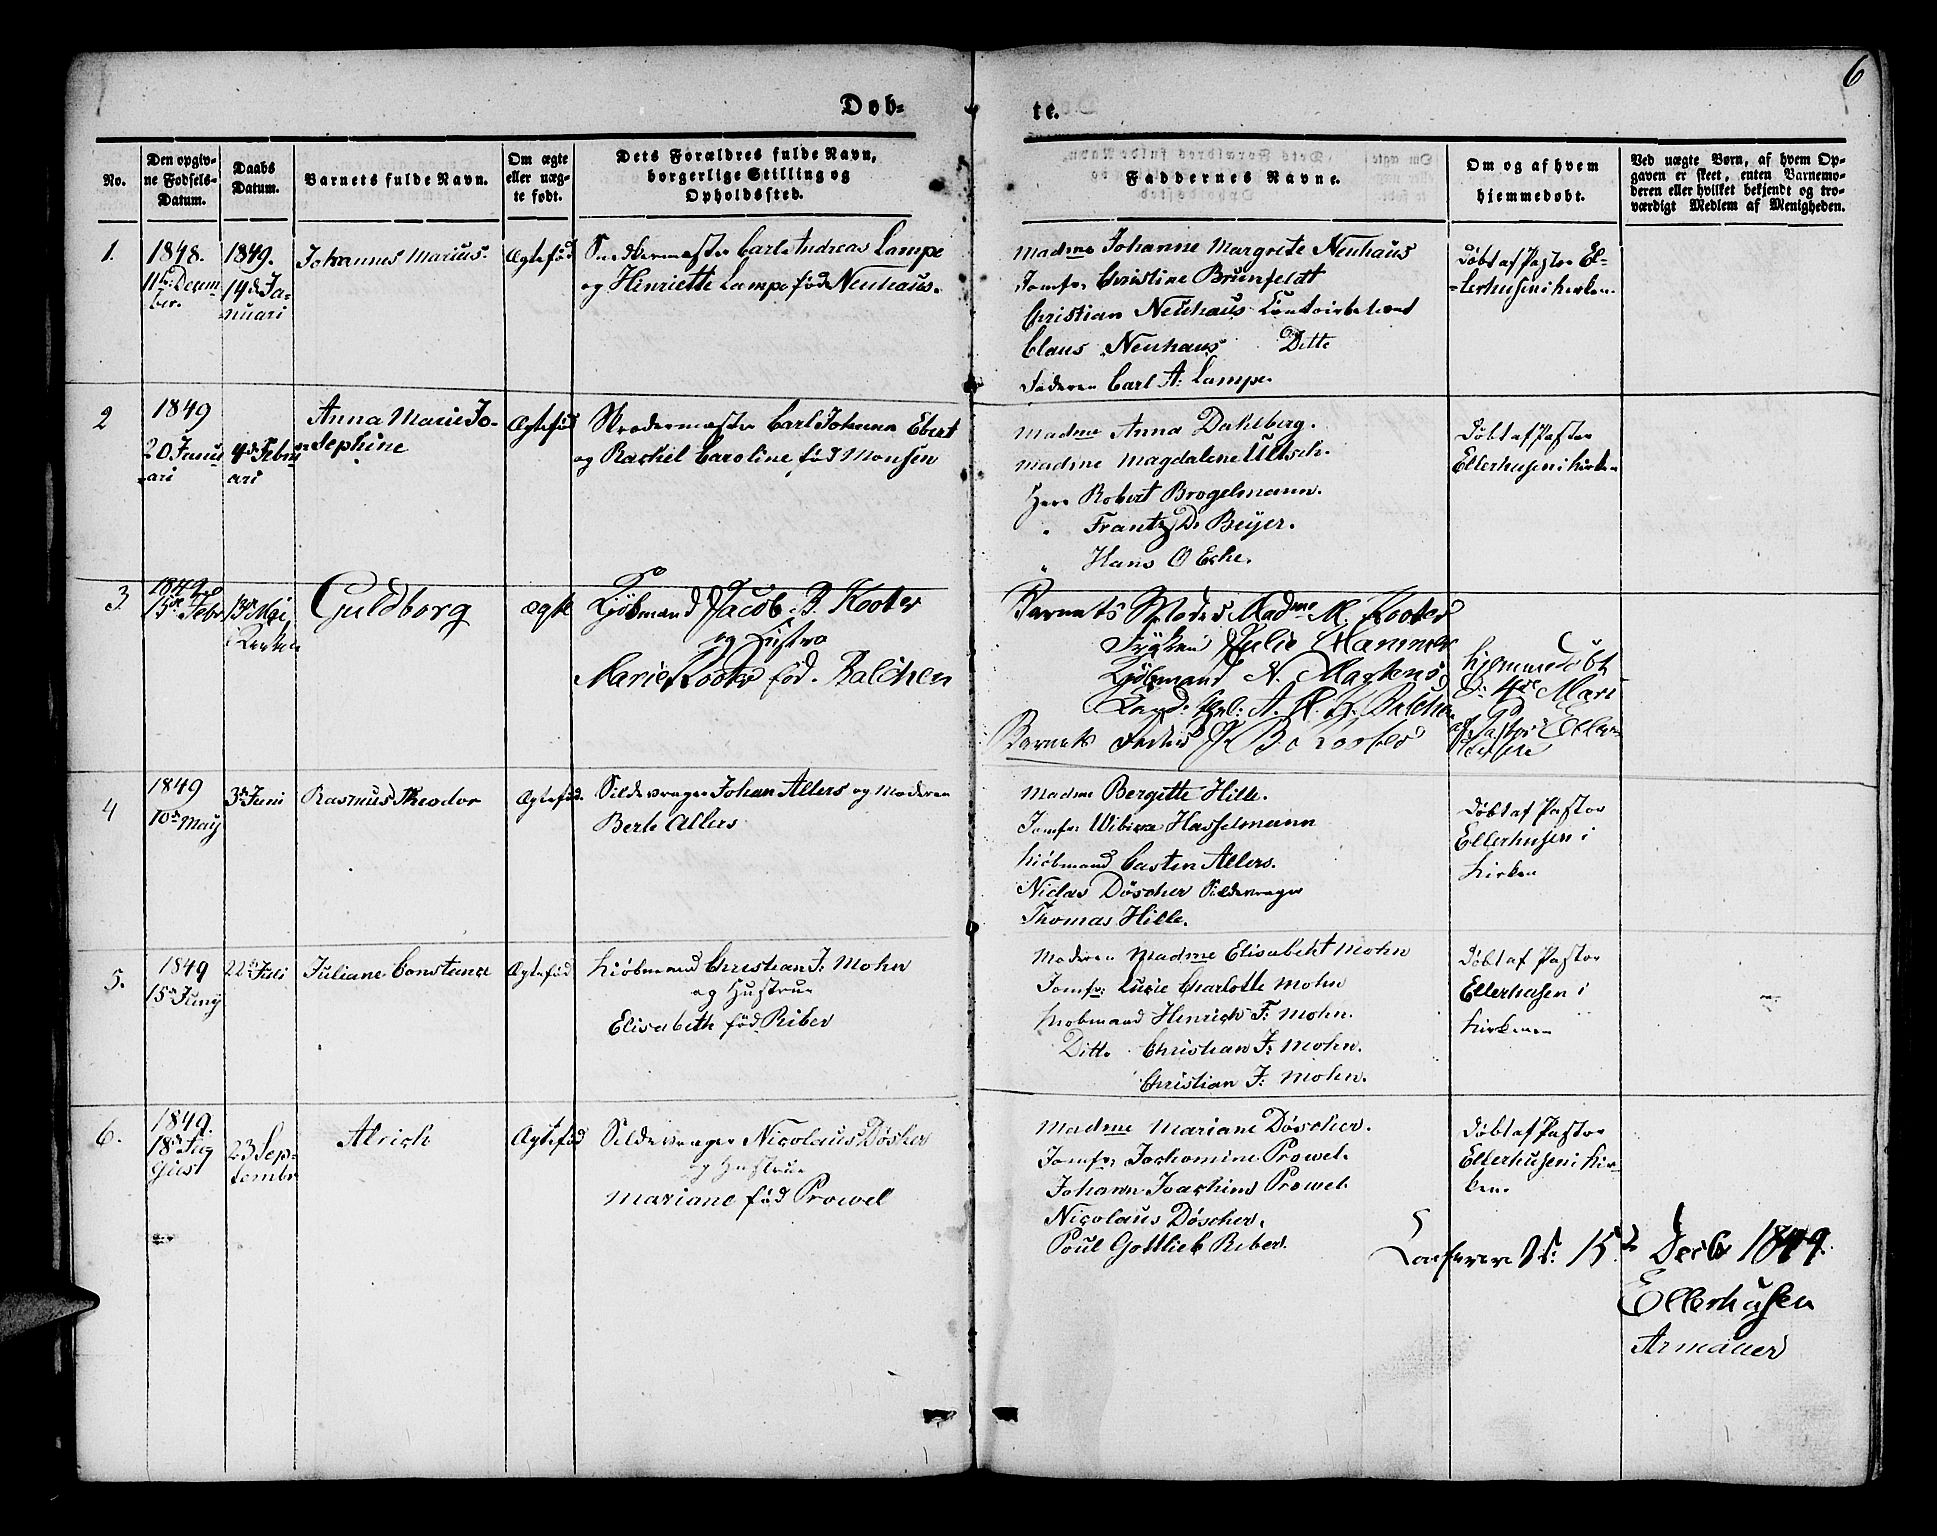 6
Døb-
te.
No.
Den opgiv-
ne Fødsels-
Datum.
Daabs
Datum.
Barnets fulde Navn.
Om ægte
eller uæg-
te født.
Dets Forældres fulde Navn,
borgerlige Stilling og
Opholdssted.
Faddernes Navne.
Om og af hvem
hjemmedøbt.
Ved uægte Børn, af hvem Op-
gaven er skeet, enten Barnemo-
deren eller hvilket bekjendt og tro-
værdigt Medlem af Menigheden.
1.
1848.
11te Decem
ber.
1849.
14de Ja-
nuari
Johannes Marius.
Ægtefød
Carl Andreas Lampe
og Henriette Lampe fød Neuhaus.
Madme Johanne Margrete Neuhaus
Jomfr. Christine Brunfeldt
Christian Neuhaus
Claus Neuhaus Ditto
Faderen Carl A. Lampe.
Døbt af Pastor El-
lerhusen i Kirken
2
1849
20 Janu
ari
4de Febru
ari
Anna Marie Jo-
sephine
Ægtefød
Carl Johann Ebert
og Rachel Caroline fød Monsen
Madme Anna Dahlberg.
Madme Magdalene Ultsch.
Herr Robert Brogelmann.
" Frantz D. Beyer.
" Hans O Eche.
Døbt af Pastor
Ellerhusen i Kirken
3.
1849
15de Febr
13de Mai
i Kirken
Guldborg
ægte
Kjøbmand Jacob B. Kooter
og Hustro
Marie Kooter fød. Balchen
Barnets Moder Madme M. Kooter
Frøken Julie Hammer
Kjøbmand A. Martens
A. H. Balchen
Barnets Fader J. B. Kooter
hjemmedøbt
d: 4de Mars
af Pastor Eller
husen
4
1849
10de May
3de Juni
Rasmus Theodor
Ægtefød.
Sildevrager Johan Allers og Moderen
Berte Allers
Madme Bergitte Hille.
Jomfr. Wibicke Hasselmann
Kiøbmand Casten Allers.
Niclas Döscher Sildevrager
Thomas Hille.
Døbt af Pastor
Ellerhusen i
Kirken
5.
1849
15de Juny
22de Juli
Juliane Constance
Ægtefød
Kiøbmand Christian F. Mohn
og Hustrue
Elisabeth fød Riber
Moderen Madme Elisabeht Mohn
Jomfr: Lucie Charlotte Mohn
Kiøbmand Henrich F: Mohn.
Ditto Christian F: Mohn.
Christian F: Mohn.
Døbt af Pastor
Ellerhusen i
Kirken
6.
1849.
18de Au
gust
23 Sep-
tember
Alrich
Ægtefød
Sildevrager Nicolaus Döscher
og Hustrue
Mariane fød Prowel
Madme Mariane Döscher.
Jomfr: Jochomine Prowel.
Johann Joachim Prowel.
Nicolaus Döscher.
Poul Gottlieb Riber.
Døbt af Pastor
Ellerhusen i Kir
ken.
15d Decbr 1849.
Ellerhusen
Armauer